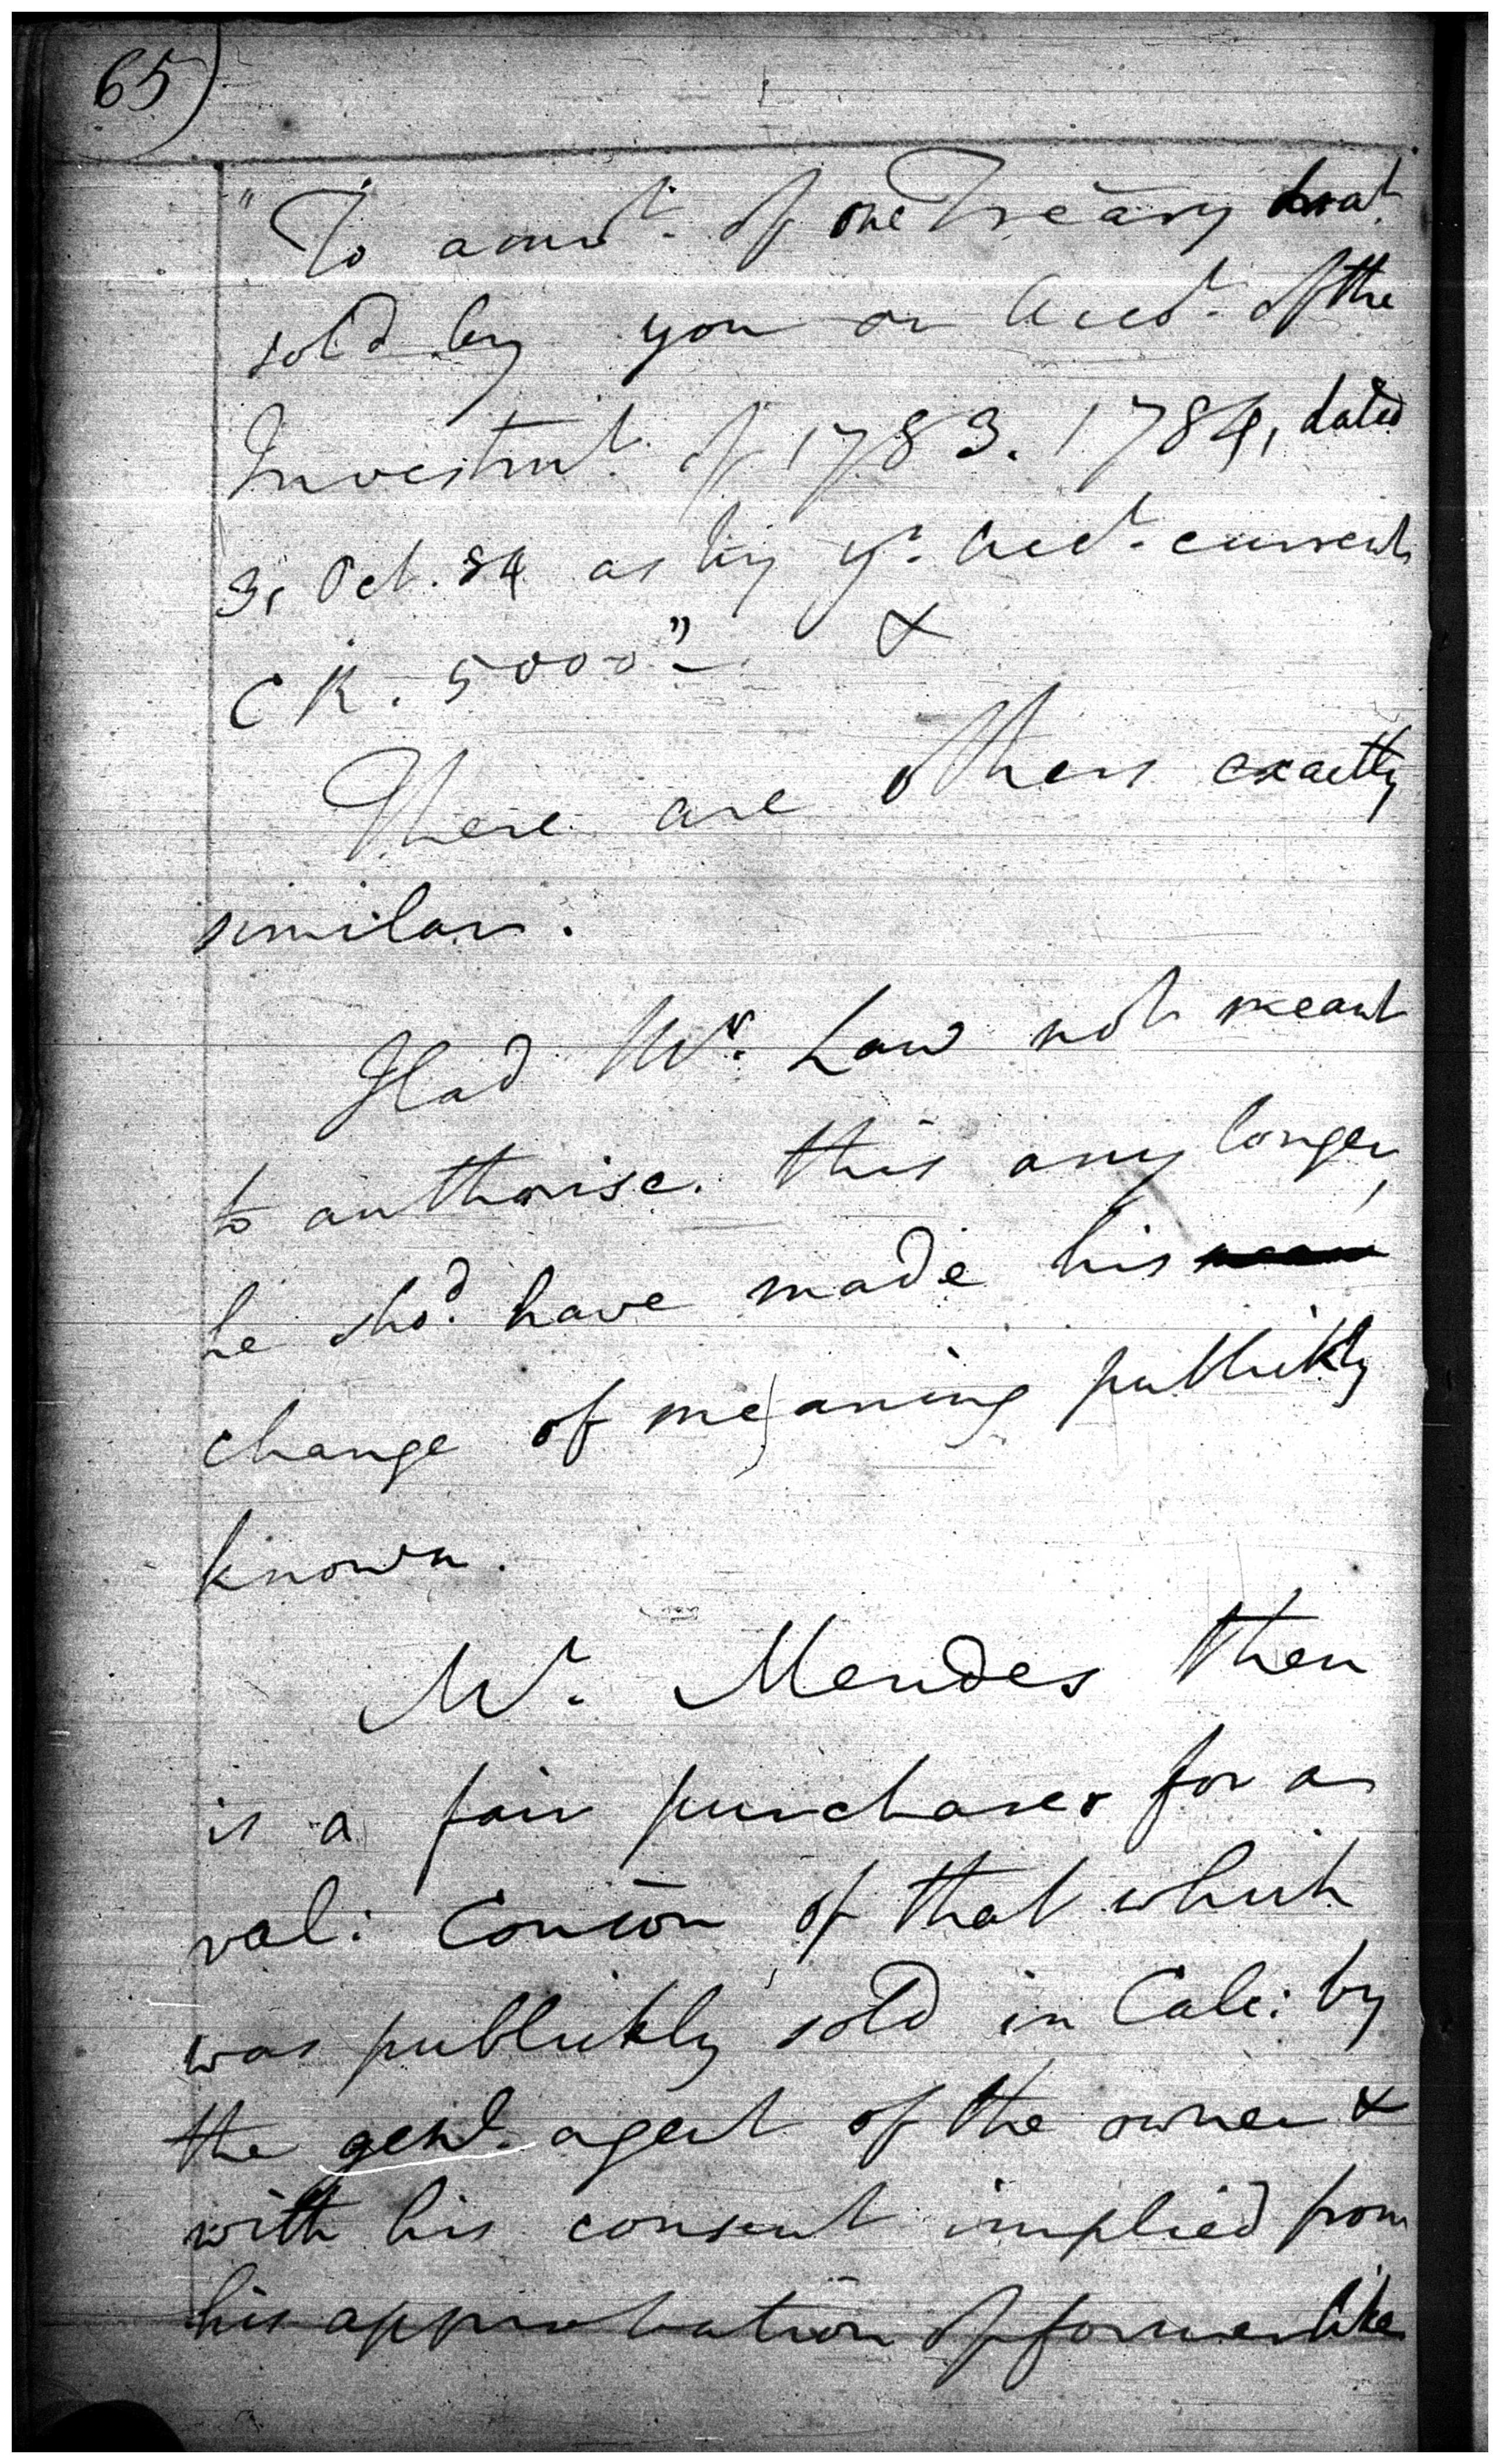 65)
"To amt. of one Treasy draft
sold by you on Acct. of the
Investmt. of 1783. 1784, dated
31 Oct. 84 as by yr. Acct. current
CR. 5000"–. &
There are others exactly
similar.
Had Mr. Law not meant
to authorise this any longer,
he shod. have made his
change of meaning publickly
known.
Mr. Mendes then
is a fair purchaser for a
val: Concon of that which
was publickly sold in Calc: by
the genl. agent of the owner &
with his consent implied from
his approbation of former like